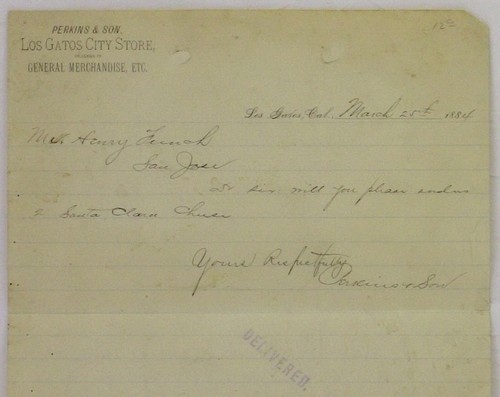 PERKINS & SON,
LOS GATOS CITY STORE,
DEALERS IN
GENERAL MERCHANDISE, ETC.
Los Gatos, Cal. March 25th 1884
Mr. Henry French
San Jose
Dr sir will you please
5 Santa Clara Cheese
Yours Respectfully
Perkins & Son
DELIVERED.